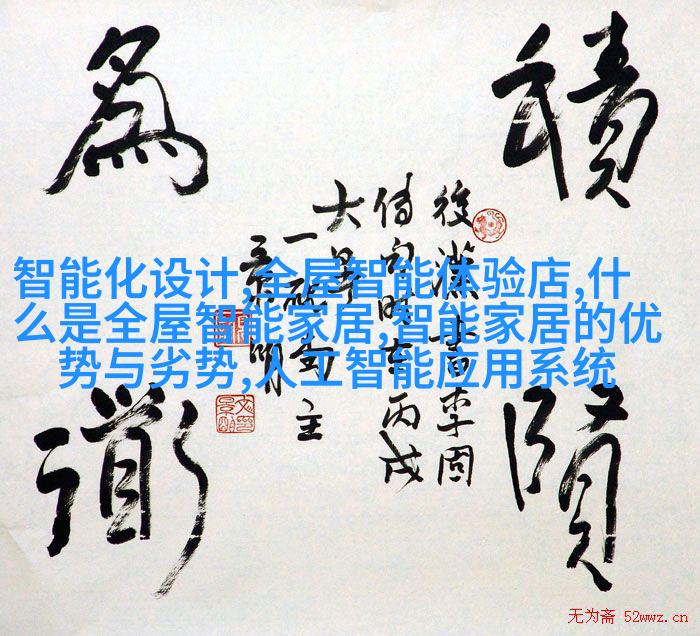 積賢
為道
後漢書李固
傳句時在丙戌
智能化设计,全屋智能体验店,什
么是全屋智能家居,智能家居的优
势与劣势,人工智能应用系统
无为斋 52wwz.cn